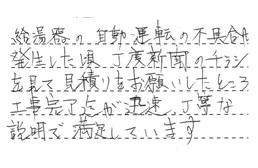 給湯器の自動運転の不具合が
発生した頃、丁度新聞のチラシ
を見て見積りをお願いしたところ
工事完了迄が迅速、丁寧な
説明で満足しています